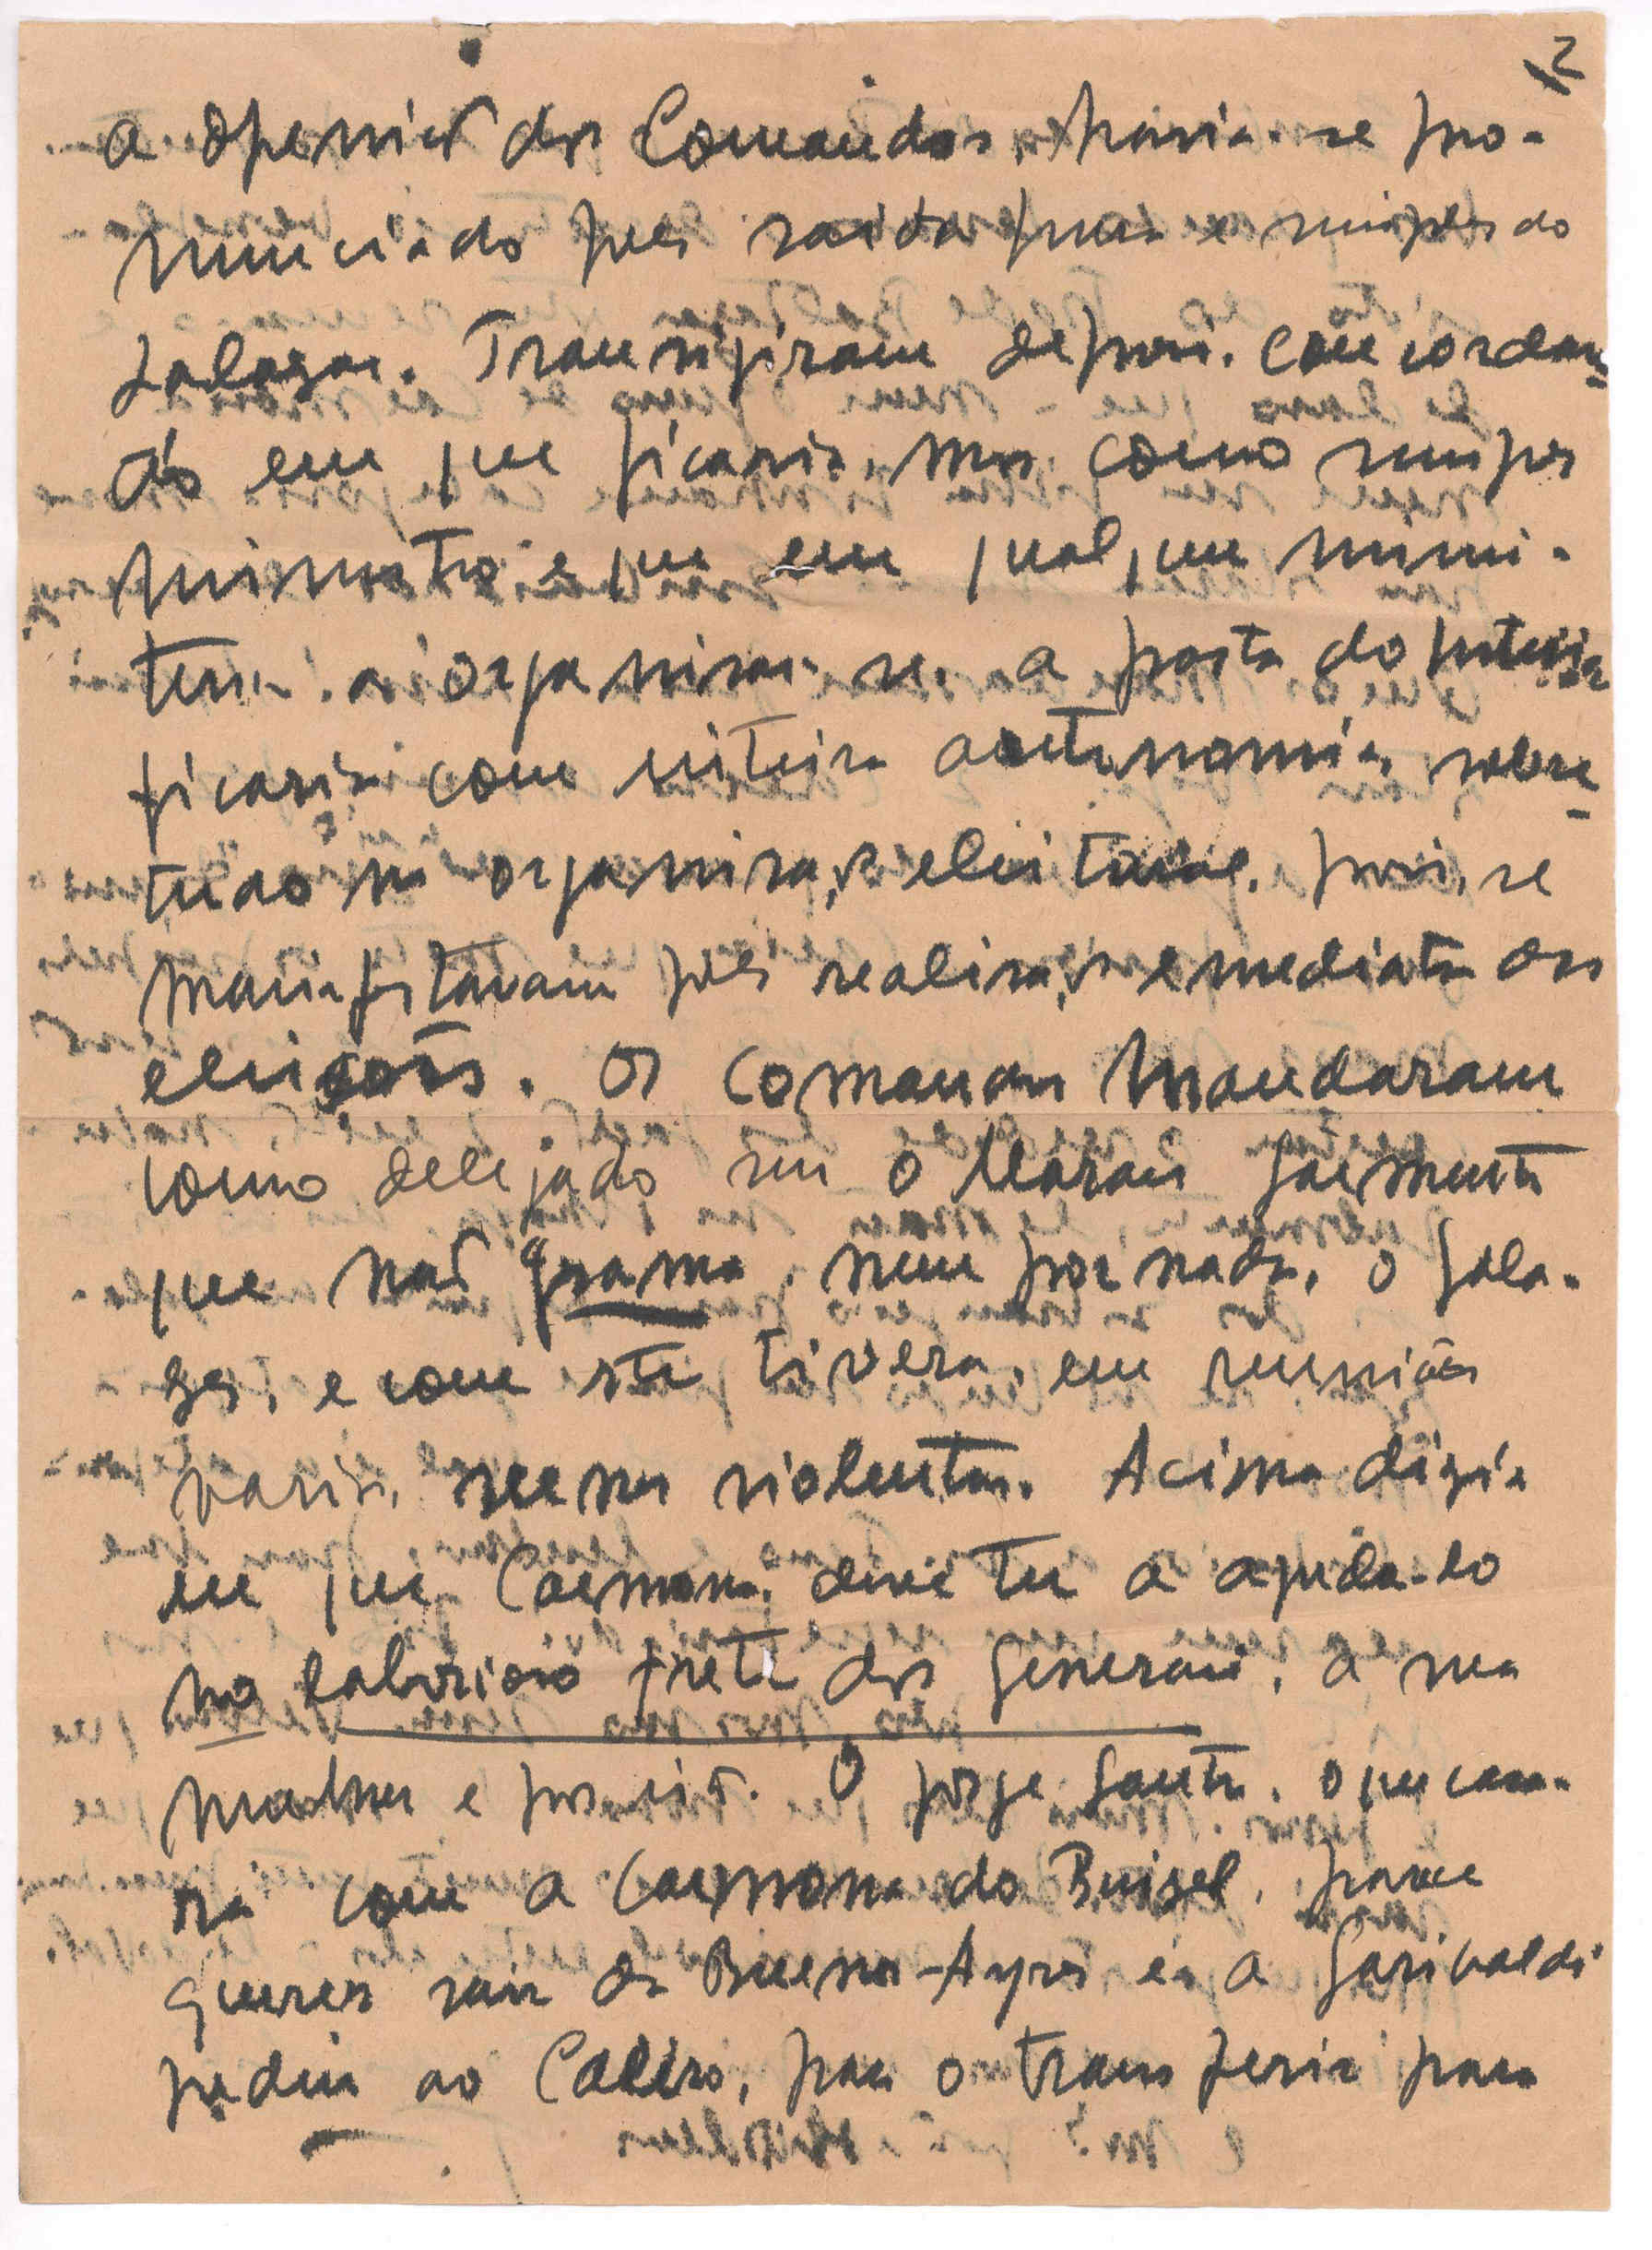 2
a opinião dos Comandos, havia-se pro-
nunciado pela saida pura e simples do
Salazar. Transigiram depois, concordan-
do em que ficaria, mas como simples
ministro e que em qualquer minis-
terio a organisar-se, a pasta do Interior
ficaria com inteira autonomia, sobre-
tudo na organisação eleitoral, pois, se
manifestavam pela realisação emediata das
eleições. Os Comandos mandaram
como delegado seu o Morais Sarmento
que não grama, nem por nada, o Sala-
zar, e com este tivera, em reuniões
varias, scenas violentas. Acima dizia
eu que Carmona, deve ter a ajuda-lo
no laborioso frete dos Generais, a sua
mulher e por isso. O Jorge Santos, o que casa-
rá com a Carmona do Buisel, parece
querer sair de Buenos-Ayres e a Garibaldi
pediu ao Caeiro, para o transferir para